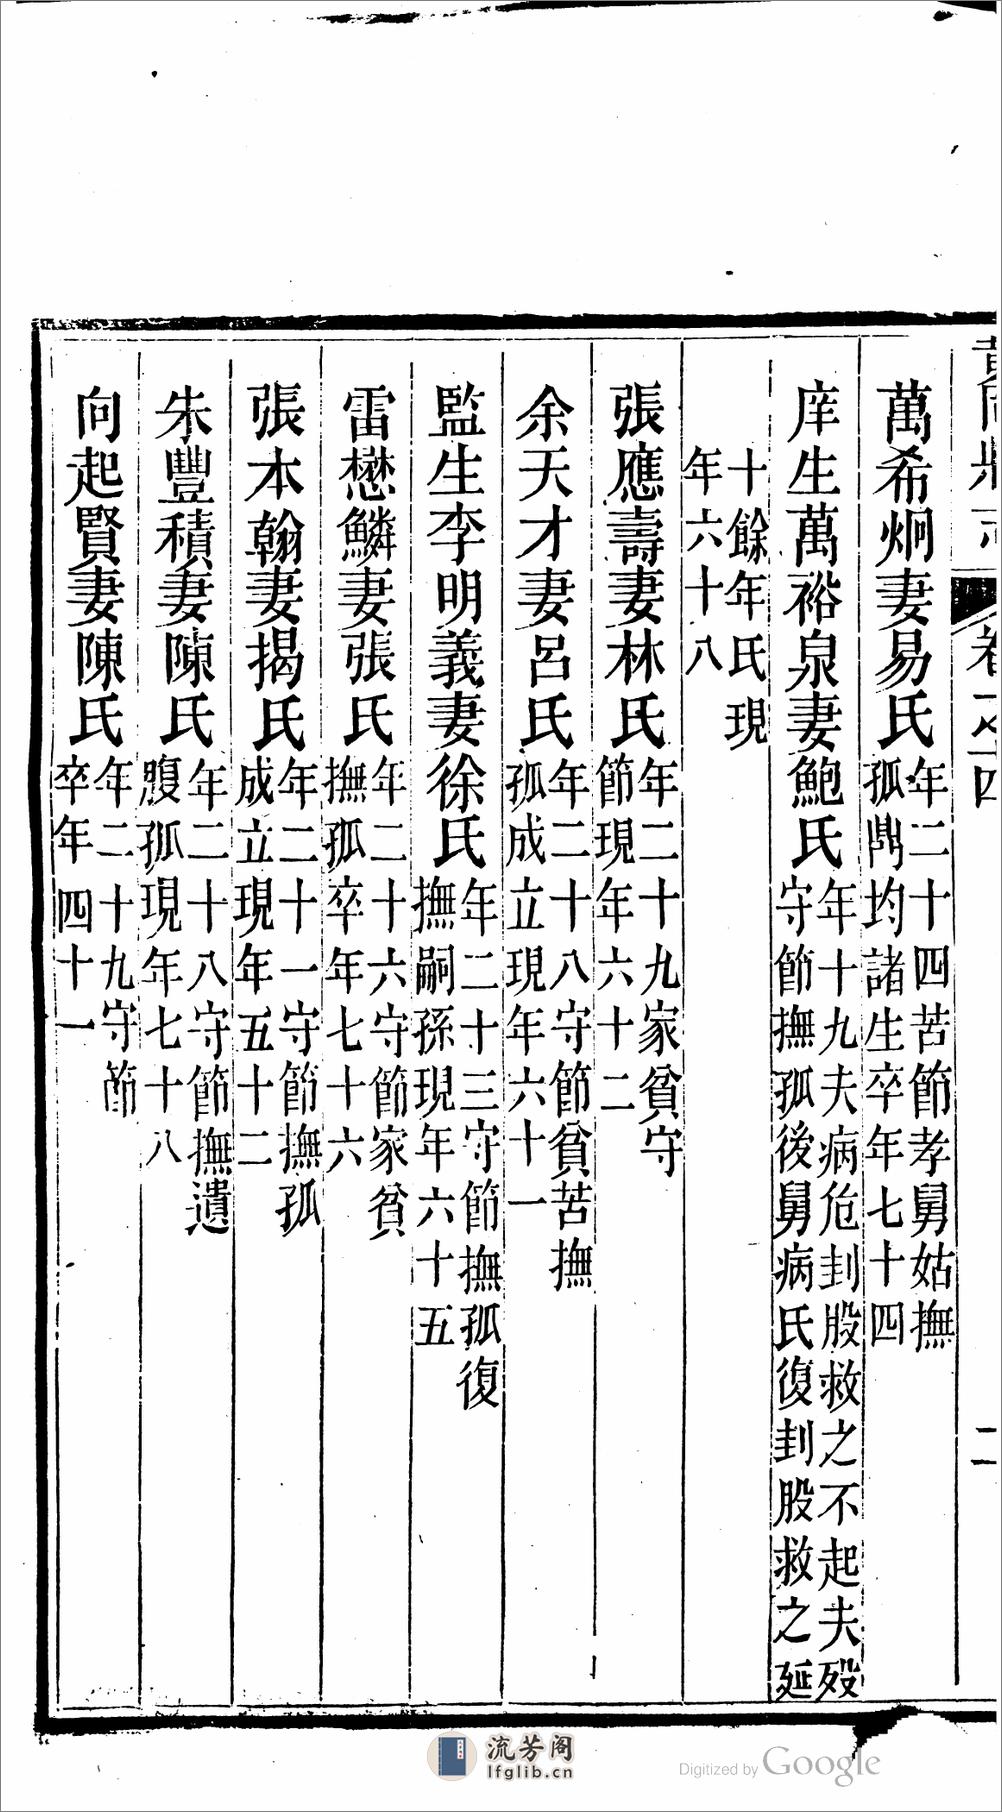 萬希炯妻易氏年二十四苦節孝舅姑撫孤鼎均諸生卒年七十四
庠生萬裕泉妻鮑氏年十九夫病危刲股救之不起夫歿守節撫孤後舅病氏復刲股救之延
十餘年氏現年六十八
張應壽妻林氏年二十九家貧守節現年六十二
余天才妻呂氏年二十八守節貧苦撫孤成立現年六十一
監生李明義妻徐氏年二十三守節撫孤復撫嗣孫現年六十五
雷懋鱗妻張氏年二十六守節家貧撫孤卒年七十六
張本翰妻揭氏年二十一守節撫孤成立現年五十二
朱豐積妻陳氏年二十八守節撫遺腹孤現年七十八
向起賢妻陳氏年二十九守節卒年四十一
流芳阁
lfglib.cn
Digitized by Google